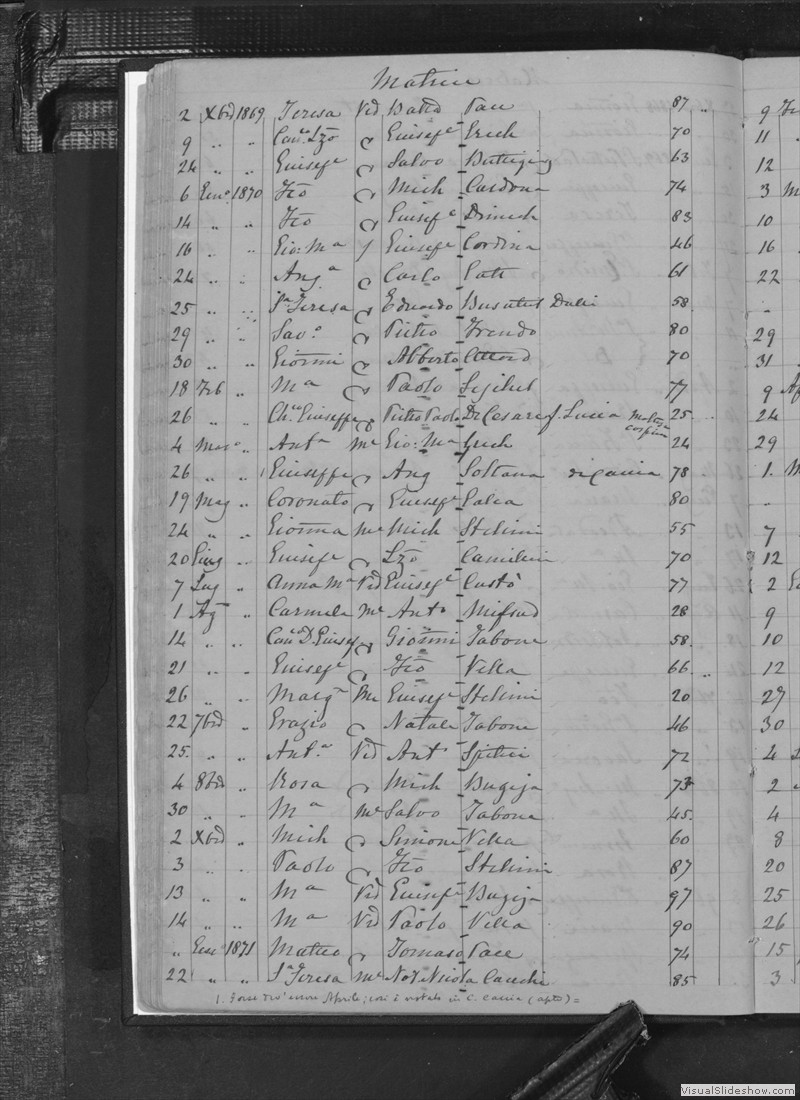 Matrice
2 Xbre 1869 Teresa Vid Batta Pace 87 ..
9 .. .. Can.co Lzo Giusep.e Grech 70
24 .. .. Giusep.e Salvo Buttigieg 63
6 Gen.o 1870 Fco Mich Cardona 74
14 .. .. Fco Giusep.e Dimech 83
16 .. .. Gio: M.a f Giusep.e Cordina 46
24 .. .. Ang.a Carlo Galt 61
25 .. .. S.a Teresa Eduardo Busuttil 58
29 .. .. Sav.o Pietro Frendo 80
30 .. .. Gionni Alberto Attard 70
18 Feb .. M.a Paolo 77
26 .. .. Ch.co Giuseppe Pietro Paolo De Cesare f. Lucia 25 ..
4 Mar.o .. Ant.a Me Gio: M.a Grech 24
26 .. .. 1 Giuseppe Ang Soltana di Caccia 78
19 Mag .. Coronato Giusep.e Galea 80
24 .. .. Gionna Me Mich Stellini 55
20 Giug .. Giusep.e Lzo Camilleri 70
7 Lug .. Anna M.a Vid Giusep.e Custò 77
1 Ag .. Carmela Me Ant.o Mifsud 28
14 .. .. Can.co D. Giusep Gionni Tabone 58
21 .. .. Giusep.e Fco Vella 66 ..
26 .. .. Marg.a Me Giusep.e Stellini 20
22 7bre .. Grazio Natale Tabone 46
25 .. .. Ant.a Vid Ant Spiteri 72
4 8bre .. Rosa Mich Bugeja 73
30 .. .. M.a Me Salvo Tabone 45
2 Xbre .. Mich Simone Vella 60
3 .. .. Paolo Fco Stellini 87
13 .. .. M.a Vid Giusep.e Bugeja 97
14 .. .. M.a Vid Paolo Vella 90
.. Gen 1871 Matteo Tomaso Pace 74
22 .. .. S.a Teresa Me Not Nicola Cauchi 85
1. Forse Aprile; così è notato in C. Caccia (apto) =
9
11
12
3 M
10
16
22
29
31
9 Ap
24
29
1. M
7
12
2
9
10
12
27
30
4
2
4
8
20
25
26
15
3
VisualSlideshow.com